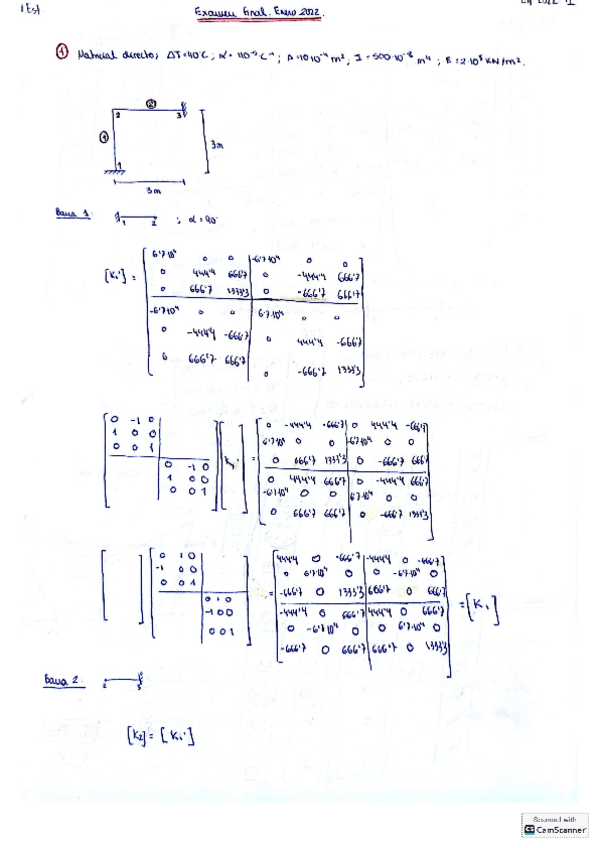 1Est.
Examen final. Enero 2022.
① Matricial directo; ΔT=40°C; α=1·10⁻⁵ C⁻¹; A=10·10⁻⁴ m²; I=500·10⁻⁸ m⁴; E=2·10⁸ KN/m².
②
2 3
①
1
3m
3m
Barra 1: 1 2 ; α=90
[K₁'] =
6'7·10⁴ 0 0 -6'7·10⁴ 0 0
0 444'4 666'7 0 -444'4 666'7
0 666'7 1333'3 0 -666'7 666'7
-6'7·10⁴ 0 0 6'7·10⁴ 0 0
0 -444'4 -666'7 0 444'4 -666'7
0 666'7 666'7 0 -666'7 1333'3
0 -1 0
1 0 0
0 0 1
0 -1 0
1 0 0
0 0 1
K₁' =
0 -444'4 -666'7 0 444'4 -666'7
6'7·10⁴ 0 0 -6'7·10⁴ 0 0
0 666'7 1333'3 0 -666'7 666'7
0 444'4 666'7 0 -444'4 666'7
-6'7·10⁴ 0 0 6'7·10⁴ 0 0
0 666'7 666'7 0 -666'7 1333'3
0 1 0
-1 0 0
0 0 1
0 1 0
-1 0 0
0 0 1
=
444'4 0 -666'7 -444'4 0 -666'7
0 6'7·10⁴ 0 0 -6'7·10⁴ 0
-666'7 0 1333'3 666'7 0 666'7
-444'4 0 666'7 444'4 0 666'7
0 -6'7·10⁴ 0 0 6'7·10⁴ 0
-666'7 0 666'7 666'7 0 1333'3
= [K₁]
Barra 2: 2 3
[K₂] = [K₁']
Scanned with
CS CamScanner